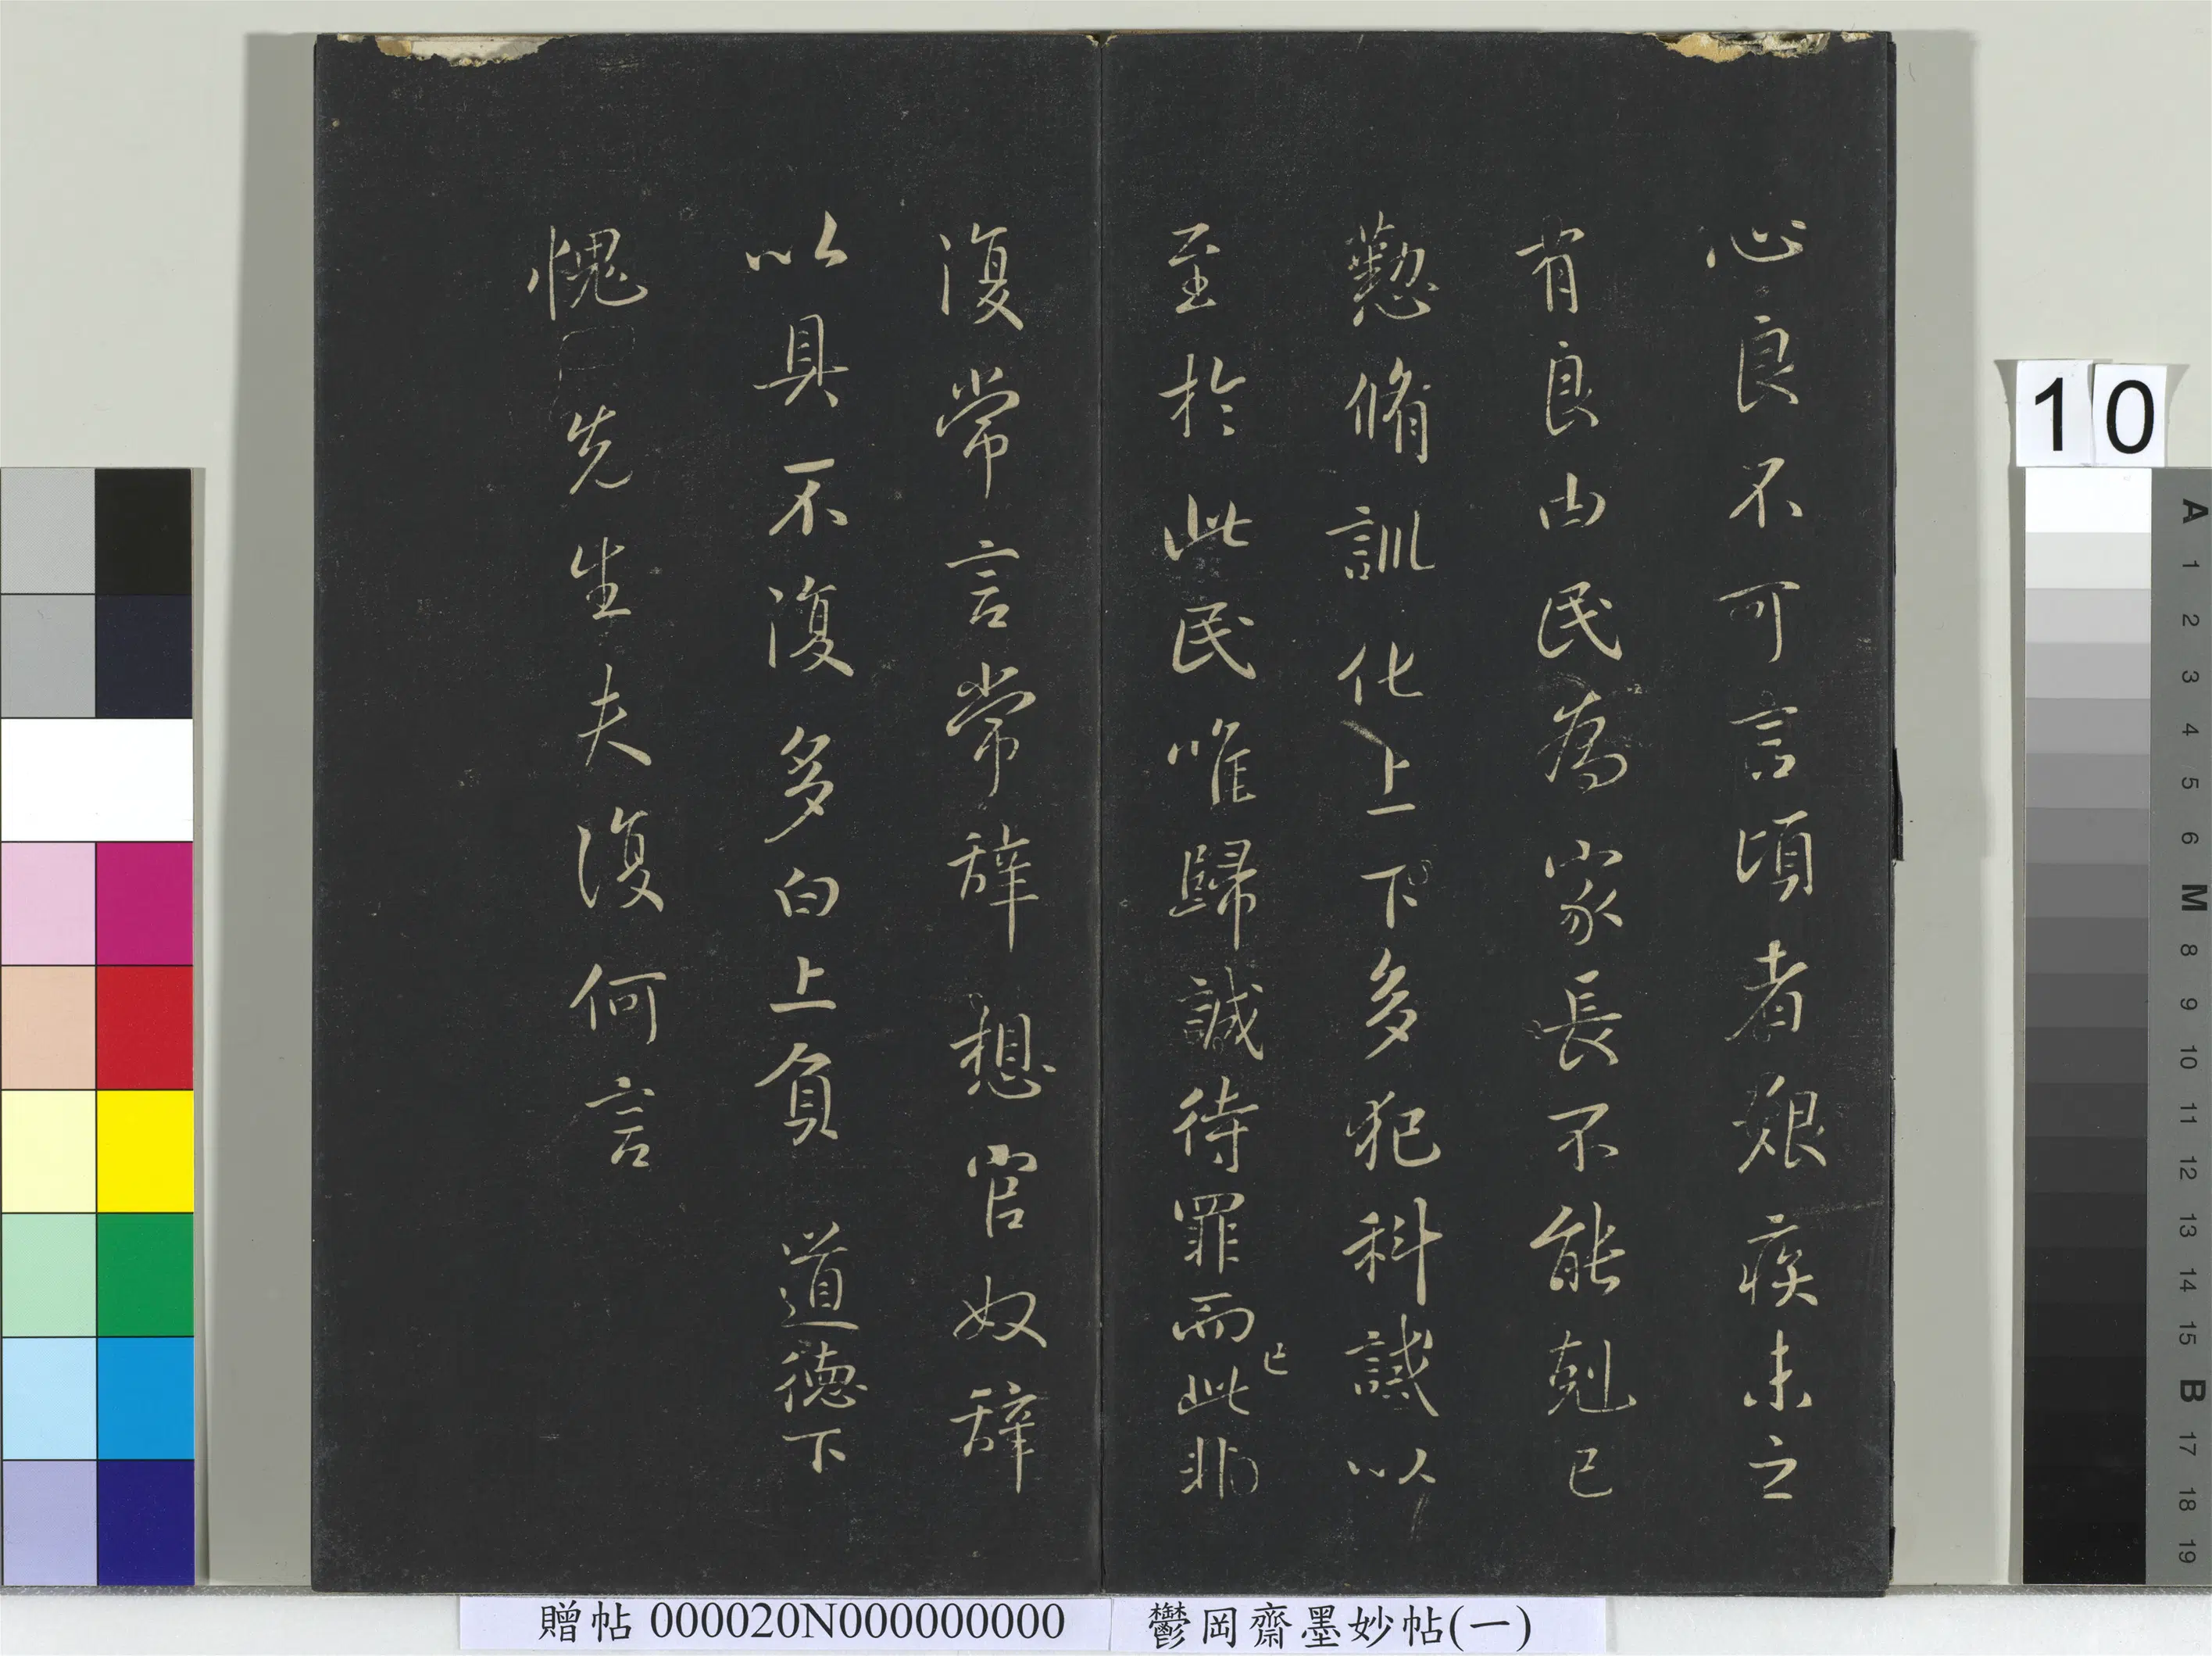 心良不可言頃者艱疾未之
有良由民為家長不能剋己
懃脩訓化上下多犯科誡以
至於此民唯歸誠待罪而已此非
復常言常辭想官奴辭
以具不復多白上負道德下
愧先生夫復何言
10
A 1 2 3 4 5 6 M 8 9 10 11 12 13 14 15 B 17 18 19
贈帖 000020N000000000
鬱岡齋墨妙帖(一)